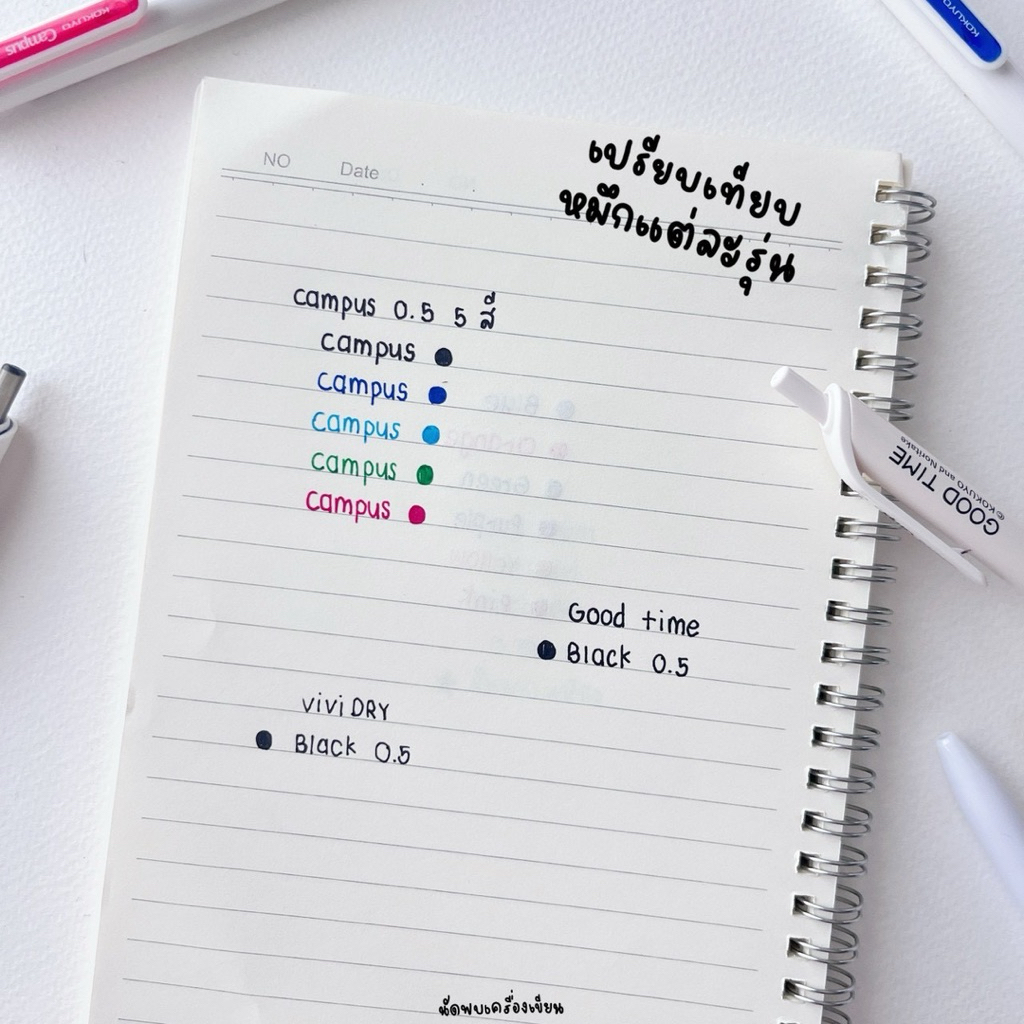 KOKUYO Campus
KOKUYO
NO Date
เปรียบเทียบ
หมึกแต่ละรุ่น
campus 0.5 5 สี
campus
campus
campus
campus
campus
GOOD TIME
©KOKUYO and Noritake
Good time
Black 0.5
vivi DRY
Black 0.5
นัดพบเครื่องเขียน